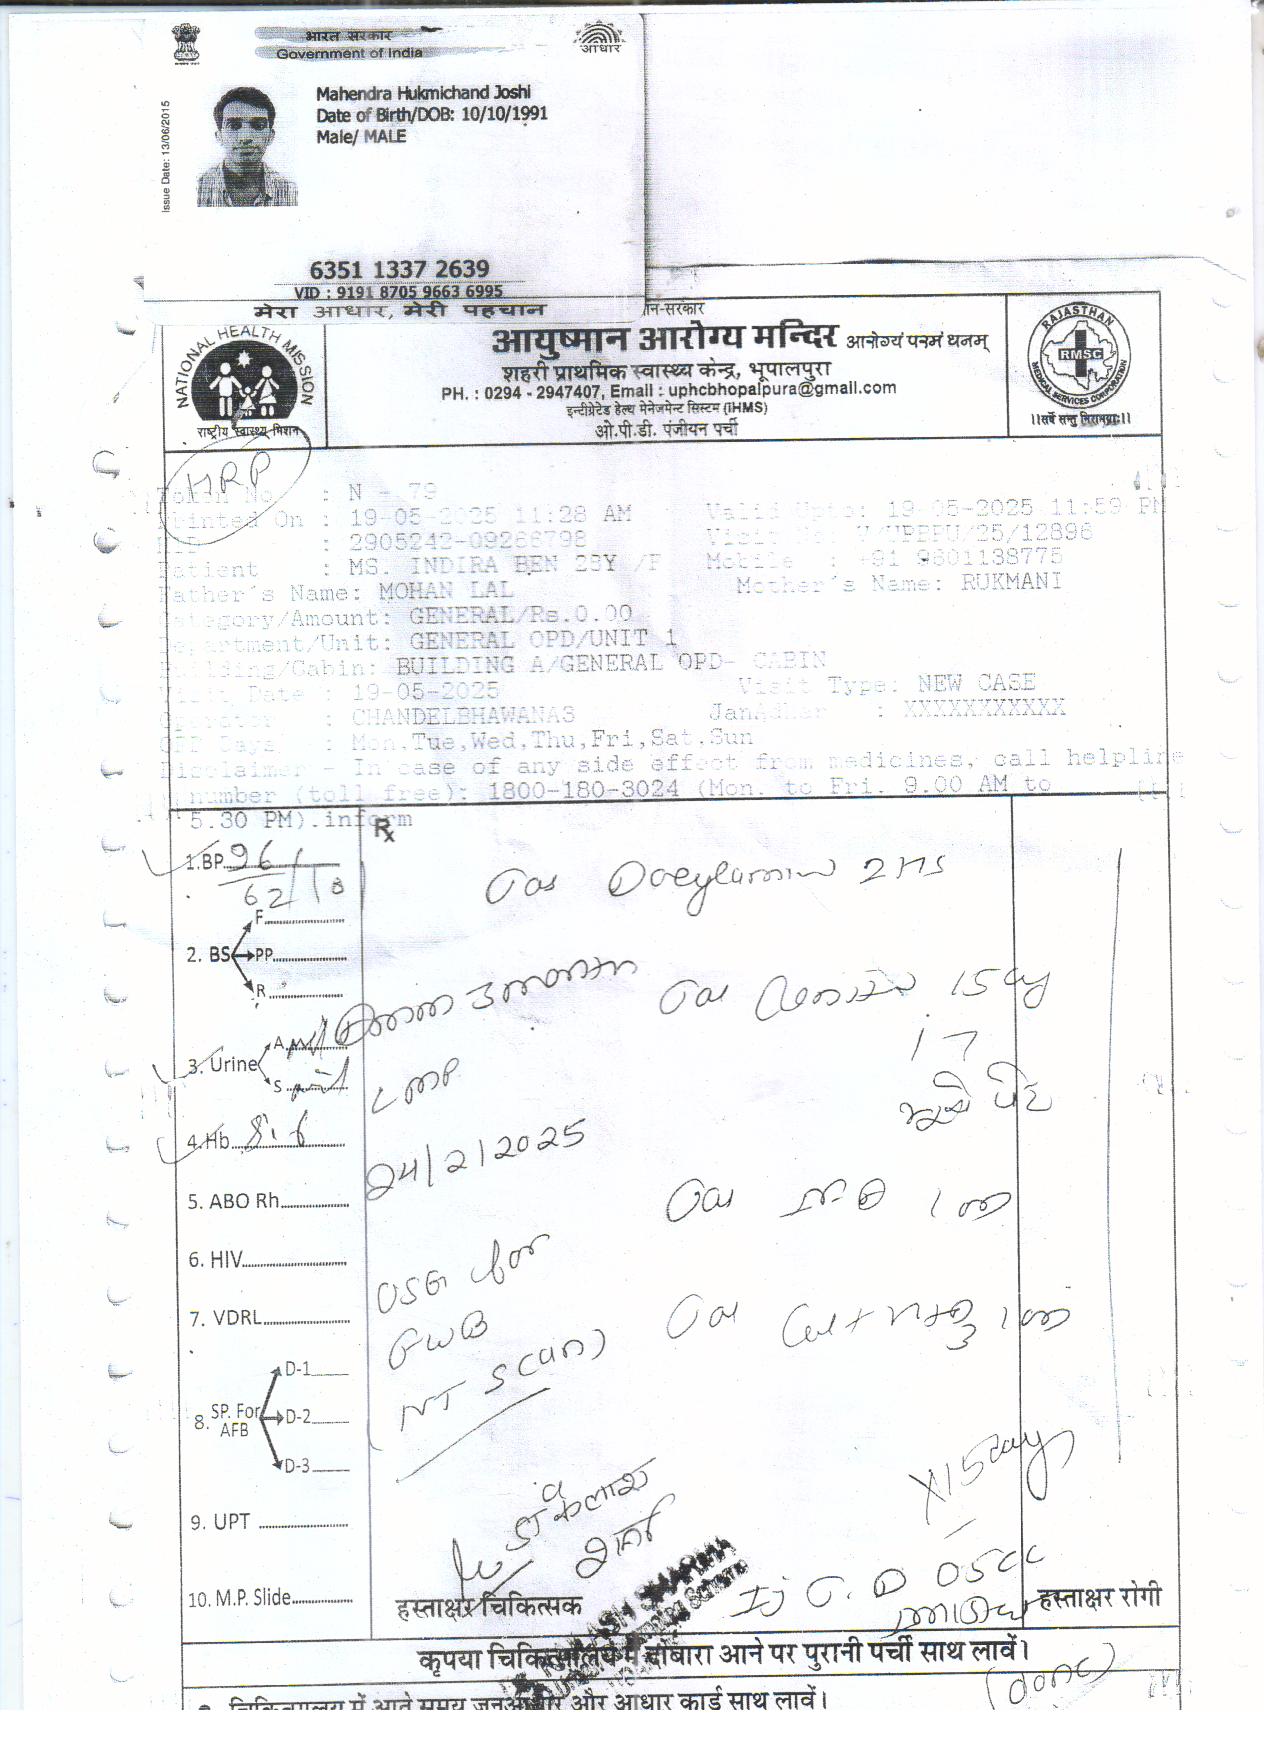 भारत सरकार
Government of India
आधार
Issue Date: 13/06/2015
Mahendra Hukmichand Joshi
Date of Birth/DOB: 10/10/1991
Male/ MALE
6351 1337 2639
VID : 9191 8705 9663 6995
मेरा आधार, मेरी पहचान
NATIONAL HEALTH MISSION
राष्ट्रीय स्वास्थ्य मिशन
आयुष्मान आरोग्य मन्दिर आरोग्यं परमं धनम्
शहरी प्राथमिक स्वास्थ्य केन्द्र, भूपालपुरा
PH. : 0294 - 2947407, Email : uphcbhopalpura@gmail.com
इन्टीग्रेटेड हेल्थ मेनेजमेन्ट सिस्टम (IHMS)
ओ.पी.डी. पंजीयन पर्ची
RAJASTHAN
RMSC
MEDICAL SERVICES CORPORATION
।।सर्वे सन्तु निरामयाः।।
HRP
Token No : N - 79
Printed On : 19-05-2025 11:28 AM Valid Upto: 19-05-2025 11:59 PM
: 2905242-09266798
Patient : MS. INDIRA BEN 28Y /F Mobile : +91 9601138775
Father's Name: MOHAN LAL Mother's Name: RUKMANI
Category/Amount: GENERAL/Rs.0.00
Department/Unit: GENERAL OPD/UNIT 1
Building/Cabin: BUILDING A/GENERAL OPD- CABIN
Visit Date : 19-05-2025 Visit Type: NEW CASE
Operator : CHANDELBHAWANAS JanAdhar : XXXXXXXXXXX
OPD Days : Mon,Tue,Wed,Thu,Fri,Sat,Sun
Disclaimer - In case of any side effect from medicines, call helpline
number (toll free): 1800-180-3024 (Mon. to Fri. 9.00 AM to
5.30 PM).inform
Rx
1.BP 96/62
2. BS F
PP
R
3. Urine A nil
S nil
4. Hb 8.6
5. ABO Rh
6. HIV
7. VDRL
8. SP. For AFB D-1
D-2
D-3
9. UPT
10. M.P. Slide
3 month
LMP
24/2/2025
USG for
FWB
NT scan)
Doxylamine 2 HS
15 day
1 m
1 m
X 15 days
Inj T.D 0.5 cc
(done)
हस्ताक्षर चिकित्सक
हस्ताक्षर रोगी
कृपया चिकित्सालय में दोबारा आने पर पुरानी पर्ची साथ लावें।
चिकित्सालय में आते समय जनआधार और आधार कार्ड साथ लावें।